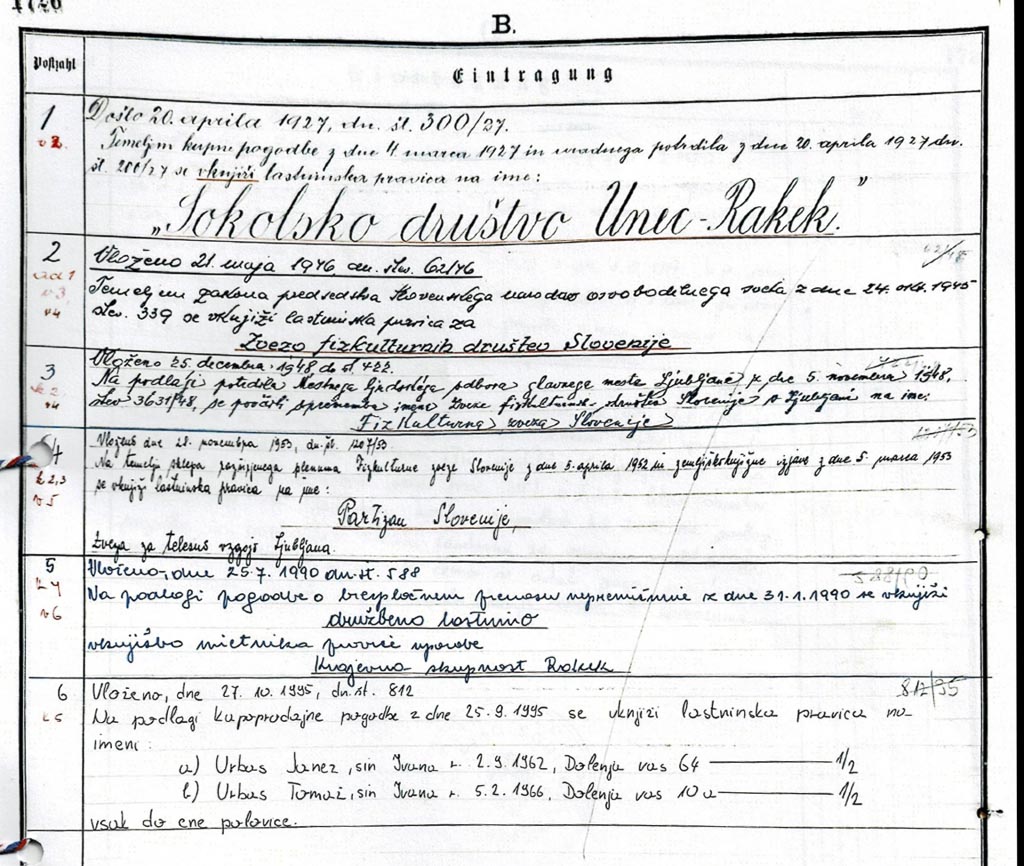 1726
B.
Postzahl
Eintragung
1
v 2.
Došlo 20. aprila 1927, dn. št. 300/27.
Temeljem kupne pogodbe z dne 4 marca 1927 in uradnega potrdila z dne 20. aprila 1927 dn.
št. 200/27 se vknjiži lastninska pravica na ime:
„Sokolsko društvo Unec-Rakek."
2
ad 1
v 3,
v4
62/46
Vloženo 21. maja 1946 dn. štev. 62/46
Temeljem zakona predsedstva Slovenskega narodno osvobodilnega sveta z dne 24. okt. 1945
štev. 339 se vknjiži lastninska pravica za
Zvezo fizkulturnih društev Slovenije
3
k 2,
v4
Vloženo 25. decembra 1948, dn. št. 422.
Na podlagi potrdila Mestnega ljudskega odbora glavnega mesta Ljubljane z dne 5. novembra 1948,
štev 3631/48, se poočiti sprememba imena Zveze fizkulturnih društev Slovenije v Ljubljani na ime:
Fizkulturna zveza Slovenije
4
k 2,3
v 5
Vloženo dne 28. novembra 1953, dn. št. 1207/53.
Na temelju sklepa razširjenega plenuma Fizkulturne zveze Slovenije z dne 5. aprila 1952 in zemljiškoknjižne izjave z dne 5. marca 1953
se vknjiži lastninska pravica na ime:
Partizan Slovenije,
Zveza za telesno vzgojo Ljubljana.
5
k 4
v6
588/90
Vloženo, dne 25.7. 1990 dn. št. 588
Na podlagi pogodbe o brezplačnem prenosu nepremičnine z dne 31.1.1990 se vknjiži
družbena lastnina
vknjižba imetnika pravice uporabe
Krajevna skupnost Rakek
6
k 5
812/95
Vloženo, dne 27. 10. 1995, dn. št. 812
Na podlagi kupoprodajne pogodbe z dne 25. 9. 1995 se vknjiži lastninska pravica na
imeni:
a) Urbas Janez, sin Ivana r. 2.9.1962, Dolenja vas 64 1/2
b) Urbas Tomaž, sin Ivana r. 5.2.1966, Dolenja vas 10a 1/2
vsak do ene polovice.